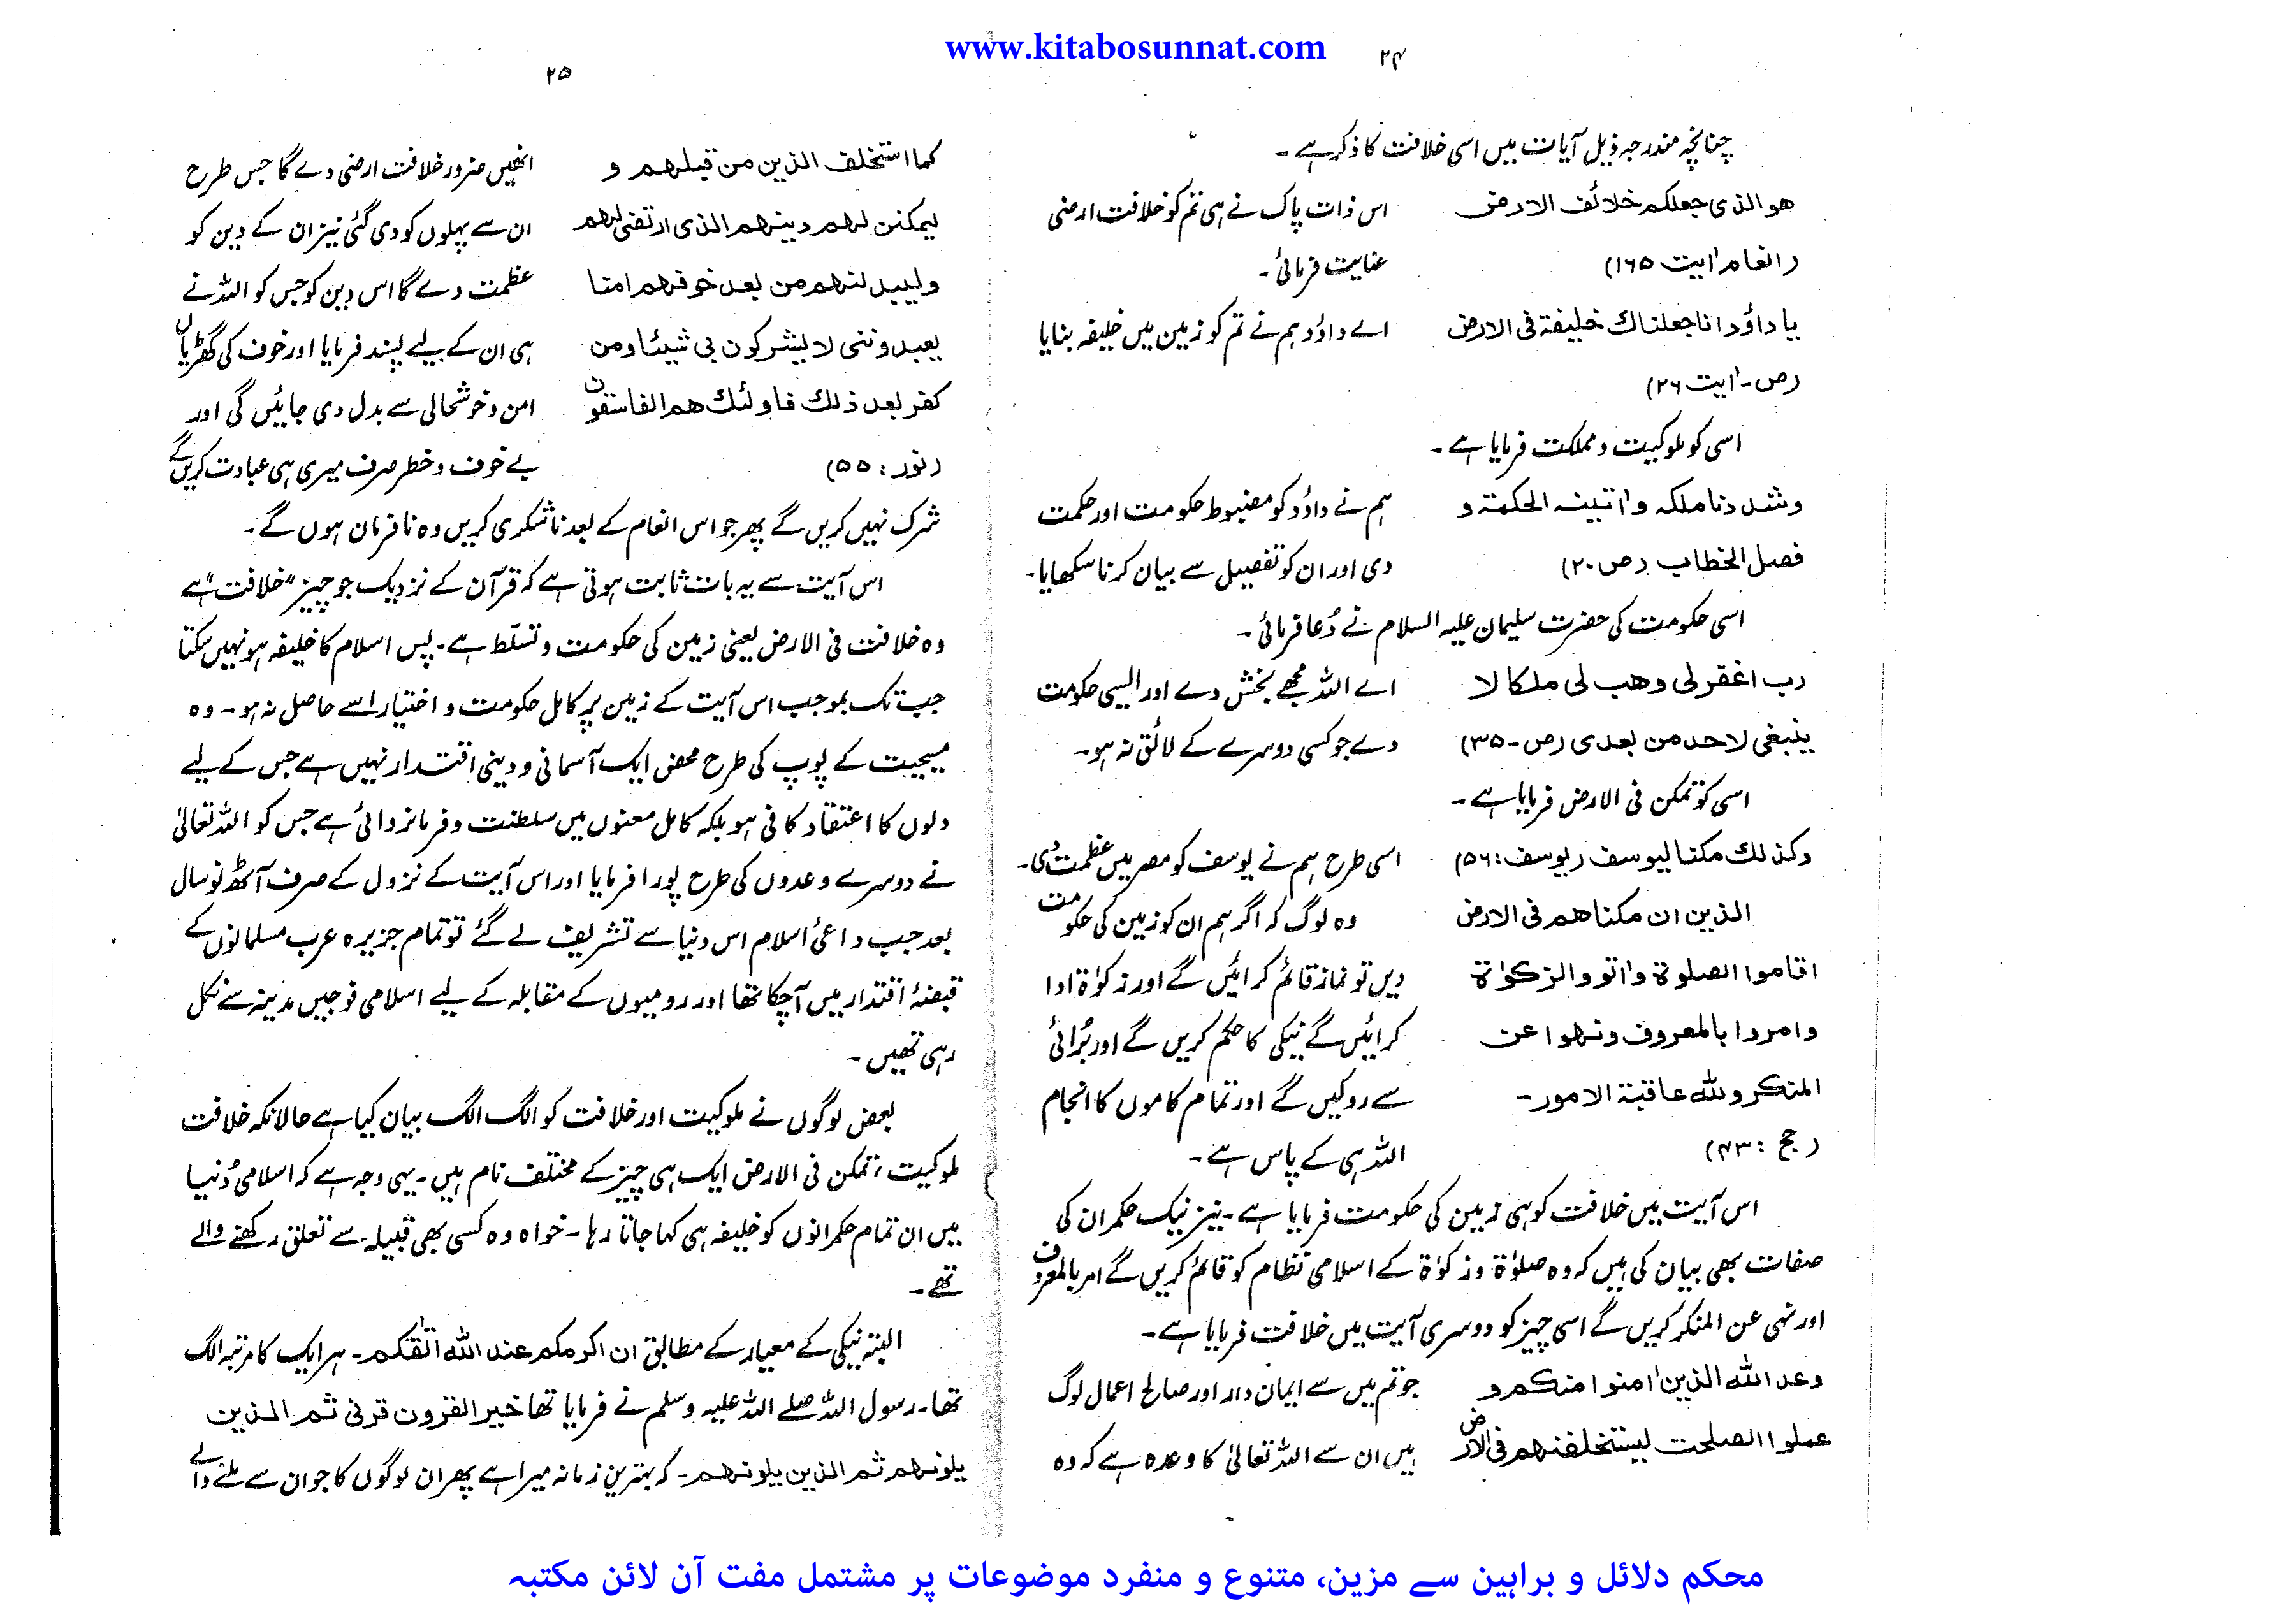 www.kitabosunnat.com
۲۴
چنانچہ مندرجہ ذیل آیات میں اسی خلافت کا ذکر ہے ۔
ھو الذی جعلکم خلائف الارض
(انعام اٰیت ۱۶۵)
اس ذات پاک نے ہی تم کو خلافت ارضی
عنایت فرمائی ۔
یا داؤد انا جعلناك خلیفة فی الارض
(ص ۔ اٰیت ۲۶)
اے داؤد ہم نے تم کو زمین میں خلیفہ بنایا
اسی کو ملوکیت و مملکت فرمایا ہے ۔
وشددنا ملکہ واٰتینہ الحکمة و
فصل الخطاب (ص ۲۰)
ہم نے داؤد کو مضبوط حکومت اور حکمت
دی اور ان کو تفصیل سے بیان کرنا سکھایا۔
اسی حکومت کی حضرت سلیمان علیہ السلام نے دُعا فرمائی ۔
رب اغفرلی وھب لی ملکا لا
ینبغی لاحد من بعدی (ص ۔ ۳۵)
اے اللہ مجھے بخش دے اور ایسی حکومت
دے جو کسی دوسرے کے لائق نہ ہو۔
اسی کو تمکن فی الارض فرمایا ہے ۔
وکذلك مکنا لیوسف (یوسف : ۵۶)
اسی طرح ہم نے یوسف کو مصر میں عظمت دی۔
الذین ان مکناھم فی الارض
اقاموا الصلوة واٰتو والزکوٰة
وامروا بالمعروف ونھوا عن
المنکر وللہ عاقبة الامور ۔
(حج : ۴۳)
وہ لوگ کہ اگر ہم ان کو زمین کی حکومت
دیں تو نماز قائم کرائیں گے اور زکوٰۃ ادا
کرائیں گے نیکی کا حکم کریں گے اور بُرائی
سے روکیں گے اور تمام کاموں کا انجام
اللہ ہی کے پاس ہے ۔
اس آیت میں خلافت کو ہی زمین کی حکومت فرمایا ہے ۔ نیز نیک حکمران کی
صفات بھی بیان کی ہیں کہ وہ صلوٰۃ و زکوٰۃ کے اسلامی نظام کو قائم کریں گے امر بالمعروف
اور نہی عن المنکر کریں گے اسی چیز کو دوسری آیت میں خلافت فرمایا ہے ۔
وعد اللہ الذین اٰمنوا منکم و
عملوا الصلحت لیستخلفنھم فی الارض
جو تم میں سے ایمان دار اور صالح اعمال لوگ
ہیں ان سے اللہ تعالیٰ کا وعدہ ہے کہ وہ
۲۵
کما استخلف الذین من قبلھم و
لیمکنن لھم دینھم الذی ارتضیٰ لھم
ولیبدلنھم من بعد خوفھم امنا
یعبدوننی لا یشرکون بی شیئا ومن
کفر بعد ذلك فاولئك ھم الفاسقون
(نور : ۵۵)
انھیں ضرور خلافت ارضی دے گا جس طرح
ان سے پہلوں کو دی گئی نیز ان کے دین کو
عظمت دے گا اس دین کو جس کو اللہ نے
ہی ان کے لیے پسند فرمایا اور خوف کی گھڑیاں
امن و خوشحالی سے بدل دی جائیں گی اور
بے خوف و خطر صرف میری ہی عبادت کریں گے
شرک نہیں کریں گے پھر جو اس انعام کے بعد ناشکری کریں وہ نافرمان ہوں گے ۔
اس آیت سے یہ بات ثابت ہوتی ہے کہ قرآن کے نزدیک جو چیز "خلافت" ہے
وہ خلافت فی الارض یعنی زمین کی حکومت و تسلّط ہے ۔ پس اسلام کا خلیفہ ہو نہیں سکتا
جب تک بموجب اس آیت کے زمین پر کامل حکومت و اختیار اسے حاصل نہ ہو ۔ وہ
مسیحیت کے پوپ کی طرح محض ایک آسمانی و دینی اقتدار نہیں ہے جس کے لیے
دلوں کا اعتقاد کافی ہو بلکہ کامل معنوں میں سلطنت و فرمانروائی ہے جس کو اللہ تعالیٰ
نے دوسرے وعدوں کی طرح پورا فرمایا اور اس آیت کے نزول کے صرف آٹھ نو سال
بعد جب داعیٔ اسلام اس دنیا سے تشریف لے گئے تو تمام جزیرہ عرب مسلمانوں کے
قبضۂ اقتدار میں آچکا تھا اور رومیوں کے مقابلہ کے لیے اسلامی فوجیں مدینہ سے نکل
رہی تھیں ۔
بعض لوگوں نے ملوکیت اور خلافت کو الگ الگ بیان کیا ہے حالانکہ خلافت
ملوکیت ، تمکن فی الارض ایک ہی چیز کے مختلف نام ہیں ۔ یہی وجہ ہے کہ اسلامی دُنیا
میں ان تمام حکمرانوں کو خلیفہ ہی کہا جاتا رہا ۔ خواہ وہ کسی بھی قبیلہ سے تعلق رکھنے والے
تھے ۔
البتہ نیکی کے معیار کے مطابق ان اکرمکم عند اللہ اتقٰکم ۔ ہر ایک کا مرتبہ الگ
تھا ۔ رسول اللہ صلے اللہ علیہ وسلم نے فرمایا تھا خیر القرون قرنی ثم الذین
یلونھم ثم الذین یلونھم ۔ کہ بہترین زمانہ میرا ہے پھر ان لوگوں کا جو ان سے ملنے والے
محکم دلائل و براہین سے مزین، متنوع و منفرد موضوعات پر مشتمل مفت آن لائن مکتبہ